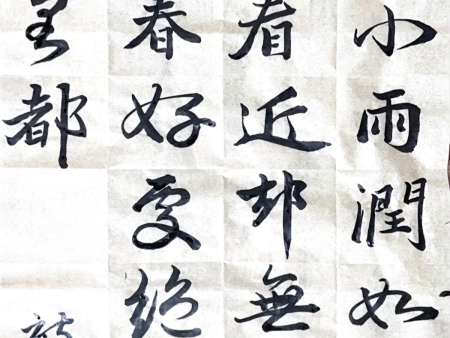 小雨潤如
看近却無
春好處絕
都